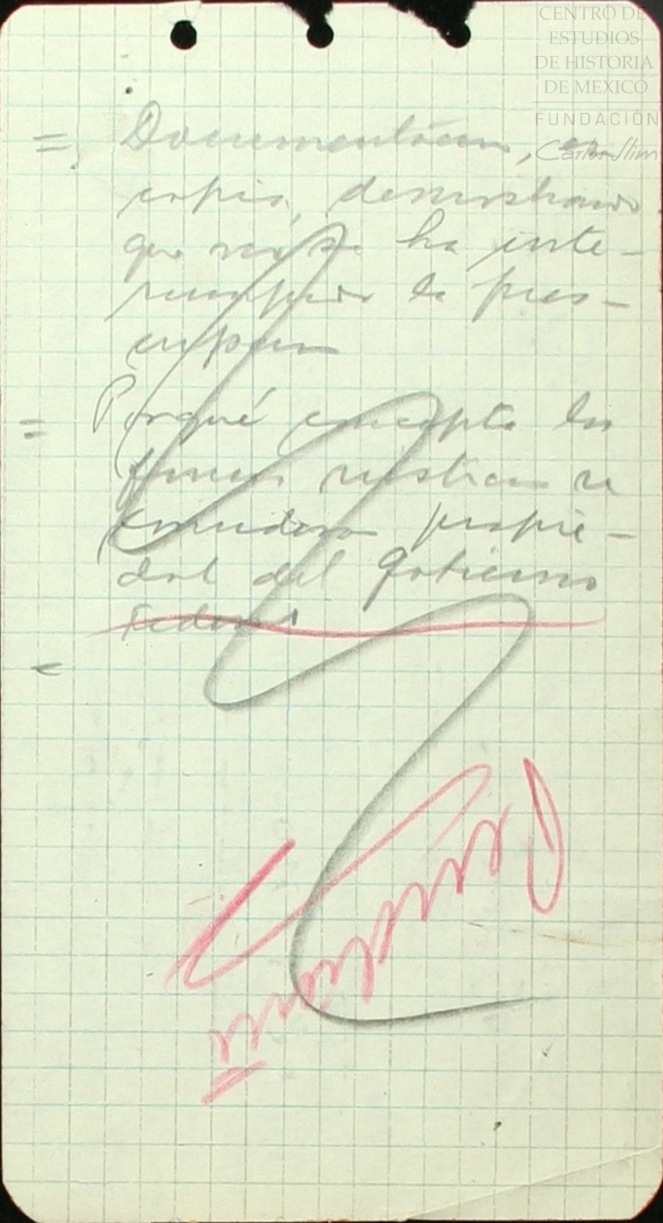 CENTRO DE
ESTUDIOS
DE HISTORIA
DE MEXICO
FUNDACIÓN
Carlos Slim
= Documentación, en
copia, demostrando
que no se ha inte-
rrumpido la pres-
cripcion
= Porqué concepto las
fincas rusticas se
consideran propie-
dad del Gobierno
Federal